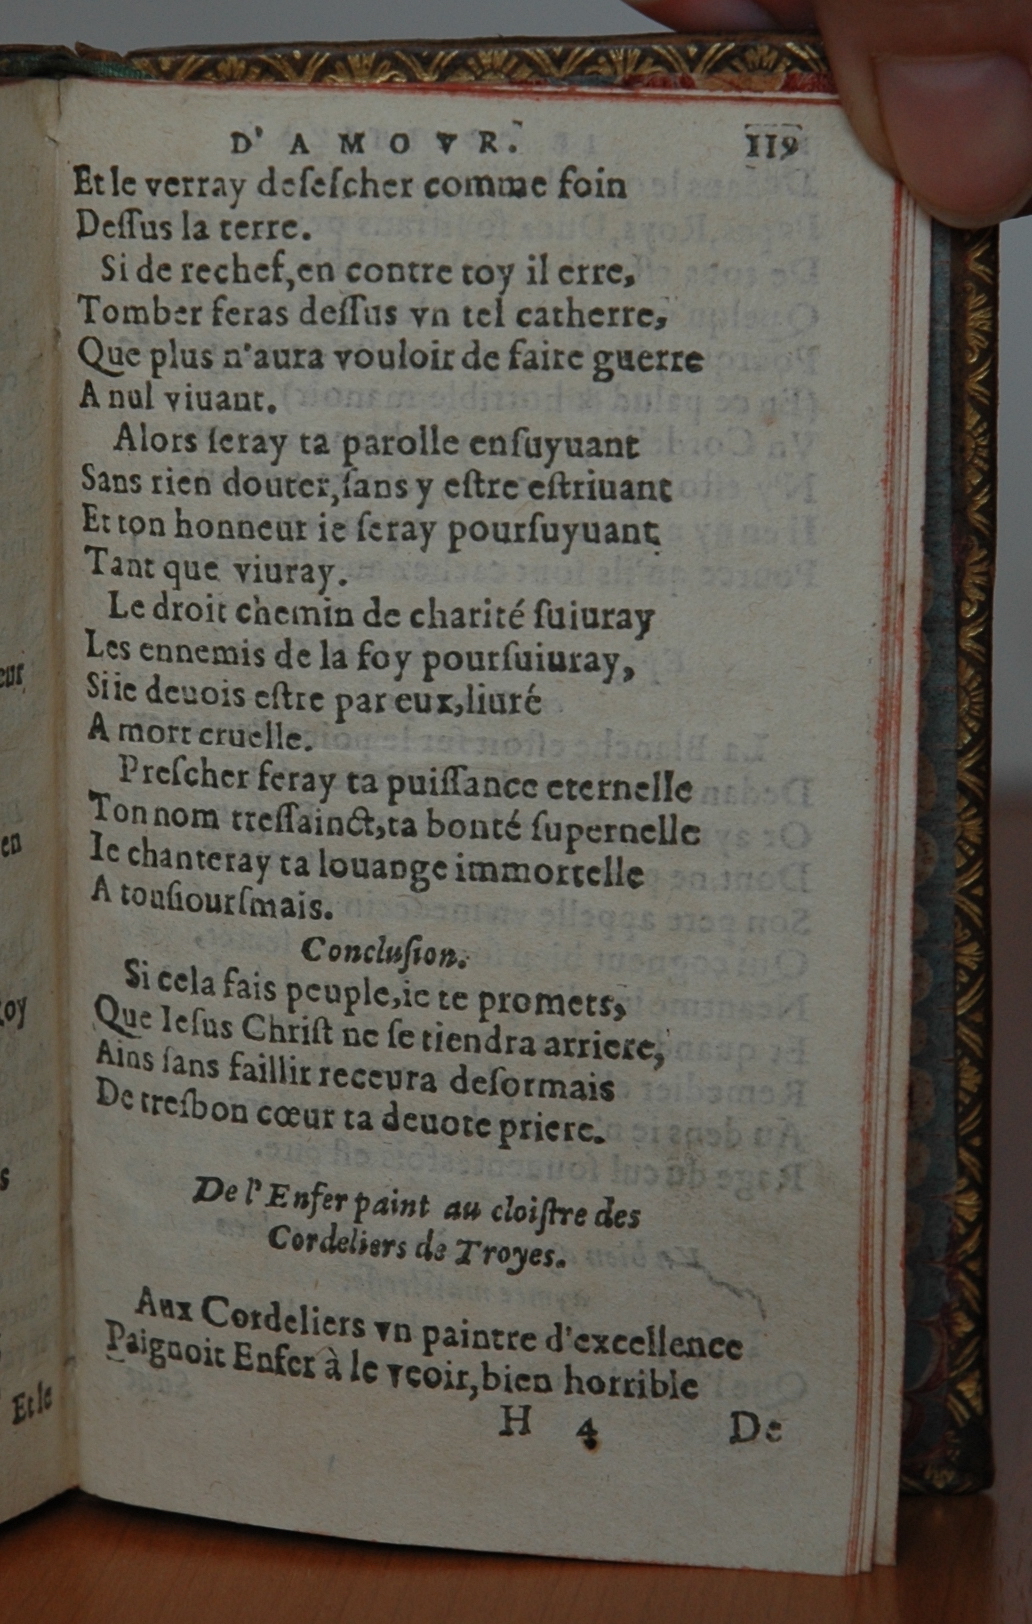 D' A M O V R.
119
Et le verray deseſcher comme foin
Deſſus la terre.
Si de rechef, en contre toy il erre,
Tomber feras deſſus vn tel catherre,
Que plus n'aura vouloir de faire guerre
A nul viuant.
Alors ſeray ta parolle enſuyuant
Sans rien douter, ſans y eſtre eſtriuant
Et ton honneur ie ſeray pourſuyuant
Tant que viuray.
Le droit chemin de charité ſuiuray
Les ennemis de la foy pourſuiuray,
Si ie deuois eſtre par eux, liuré
A mort cruelle.
Preſcher feray ta puiſſance eternelle
Ton nom treſſainct, ta bonté ſupernelle
Ie chanteray ta louange immortelle
A touſiourſmais.
Concluſion.
Si cela fais peuple, ie te promets,
Que Ieſus Chriſt ne ſe tiendra arriere,
Ains ſans faillir receura deſormais
De treſbon cœur ta deuote priere.
De l'Enfer paint au cloiſtre des
Cordeliers de Troyes.
Aux Cordeliers vn paintre d'excellence
Paignoit Enfer à le veoir, bien horrible
H 4
De
eur
en
toy
s
Et le